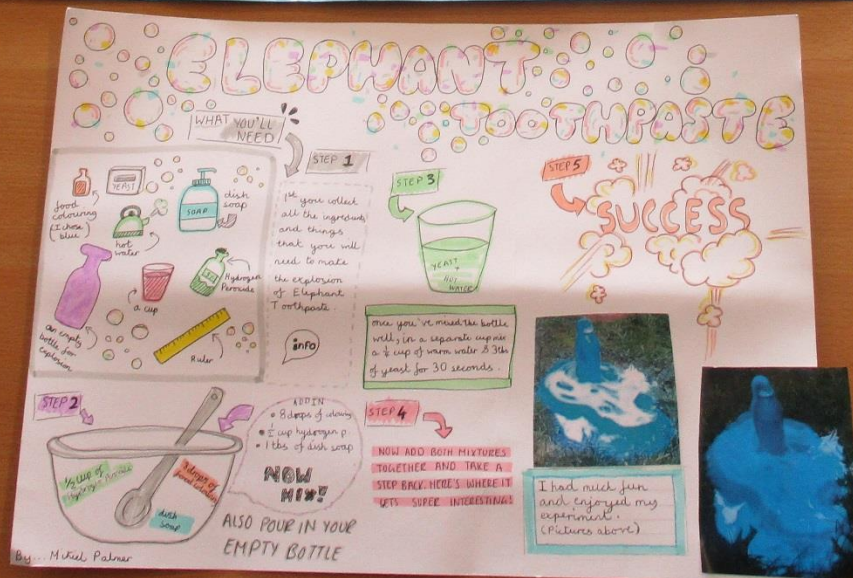 ELEPHANT
TOOTHPASTE
WHAT YOU'LL
NEED
food
colouring
(I chose
blue)
YEAST
hot
water
SOAP
dish
soap
an empty
bottle for
explosion
a cup
Hydrogen
Peroxide
Ruler
STEP 1
1st you collect
all the ingredients
and things
that you will
need to make
the explosion
of Elephant
Toothpaste.
info
STEP 2
1/2 cup of
Hydrogen
drops of
food
dish
soap
ADD IN
• 8 drops of colouring
• 1/2 cup hydrogen p.
• 1 tbs of dish soap
NOW
MIX!
ALSO POUR IN YOUR
EMPTY BOTTLE
STEP 3
YEAST
+
HOT
WATER
once you've mixed the bottle
well, in a separate cup mix
a cup of warm water & 3tbs
of yeast for 30 seconds.
STEP 4
NOW ADD BOTH MIXTURES
TOGETHER AND TAKE A
STEP BACK. HERE'S WHERE IT
GETS SUPER INTERESTING!
STEP 5
SUCCESS
I had much fun
and enjoyed my
experiment.
(Pictures above)
By... Palmer